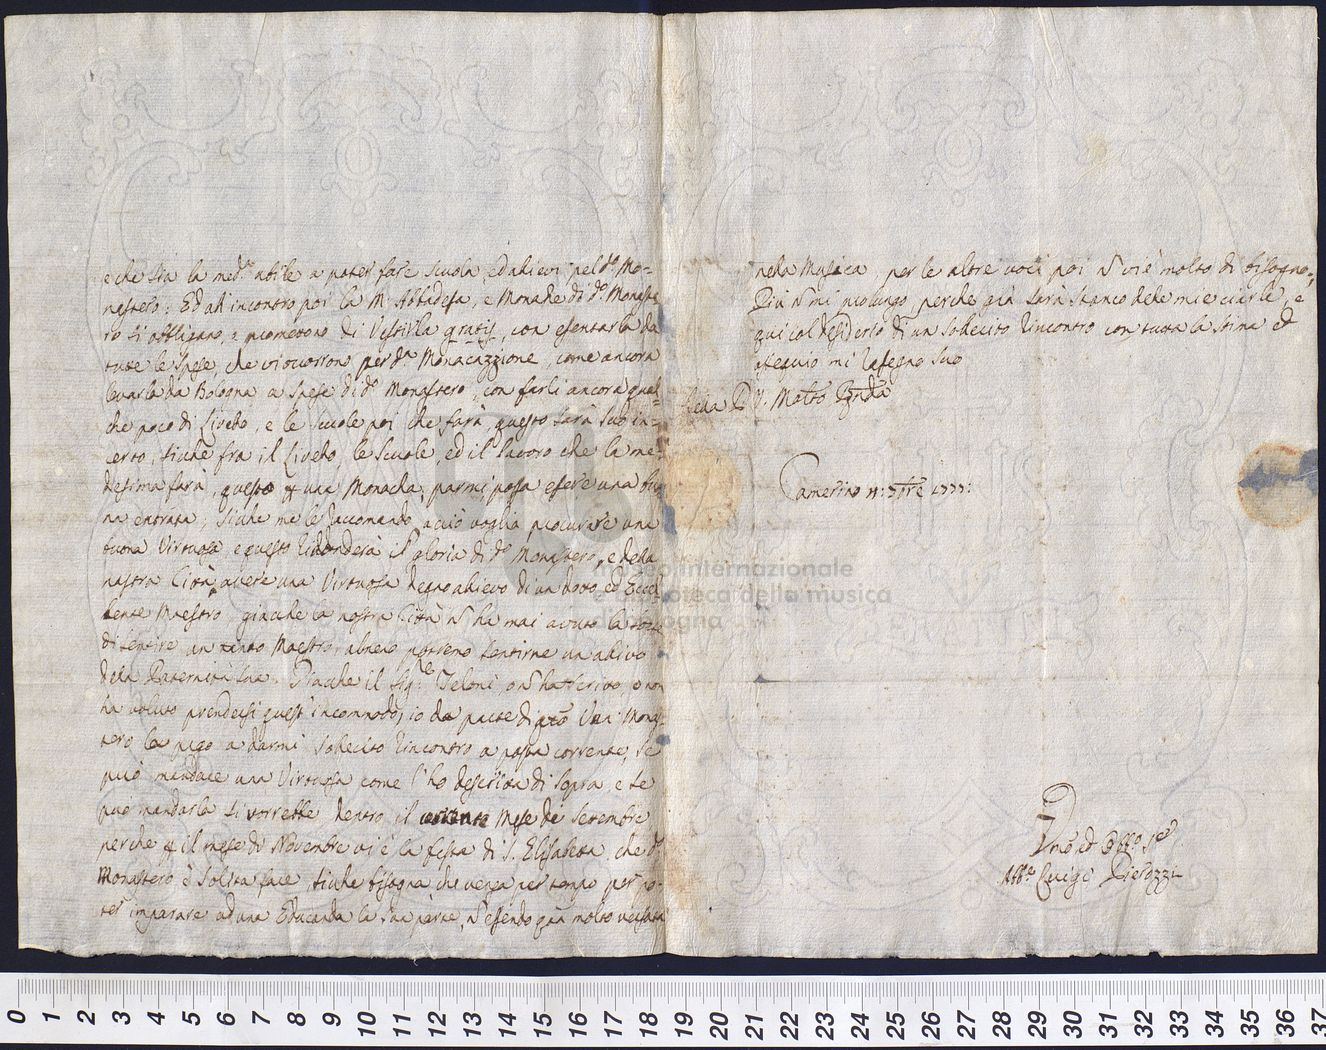 e che sia la med.ª abile a poter fare scuola, ed allievi pel d.º Mo-
nestero: Ed all incontro poi la M. Abbadessa, e Monache di d.º Moneste
ro si obbligano, e promettono di Vestirla gratis, con esentarla da
tutte le Spese, che vi occorrono per d.ª Monacazzione, come ancora
levarla da Bologna a spese di d.º Monastero, con farli ancora qual-
che poco di Livello, e le scuole poi che farà, questo sarà suo in-
certo, siche fra il Livello, le Scuole, ed il lavoro che la me-
desima farà, questo p una Monacha, parmi possa essere una buo
na entrata; siche me le raccomando, acciò voglia procurare una
buona Virtuosa, e questo ridonderà in gloria di d.º Monastero, e della
nostra Città, avere una Virtuosa degno allievo di un dotto, ed Eccel
lente Maestro, giacche la nostra Città n ha mai avuto la sorte
di sentire un tanto Maestro, almeno potremo sentirne un allievo
della Paternità Sua. Giacche il Sig.re Teloni, o n ha scritto, o non
ha voluto prendersi quest'incommodo, io da parte di Mona-
tero la prego a darmi sollecito rincontro a posta corrente, se
può mandare una Virtuosa come l'ho descritta di sopra, e se
può mandarla si vorrebbe dentro il Mese di Settembre
perche p il mese di Novembre vi è la festa di S. Elisabetta, che d.º
Monastero è solita fare, siche bisogna che venga per tempo per po-
ter imparare ad una Educanda la sua parte, n essendo qua molto versata
nella Musica, per le altre voci poi n vi è molto di bisogno.
Più n mi prolungo, perche già sarà stanco delle mie ciarle, e
qui col desiderio di un sollecito rincontro con tutta la stima ed
ossequio mi rassegno suo
Della P. V. Molto Rnda
Camerino 11: 7bre 1777:
Dmo ed Obbmo Se
Abb.e Luigi Pierozzi
museo internazionale
e biblioteca della musica
di bologna
0 1 2 3 4 5 6 7 8 9 10 11 12 13 14 15 16 17 18 19 20 21 22 23 24 25 26 27 28 29 30 31 32 33 34 35 36 37